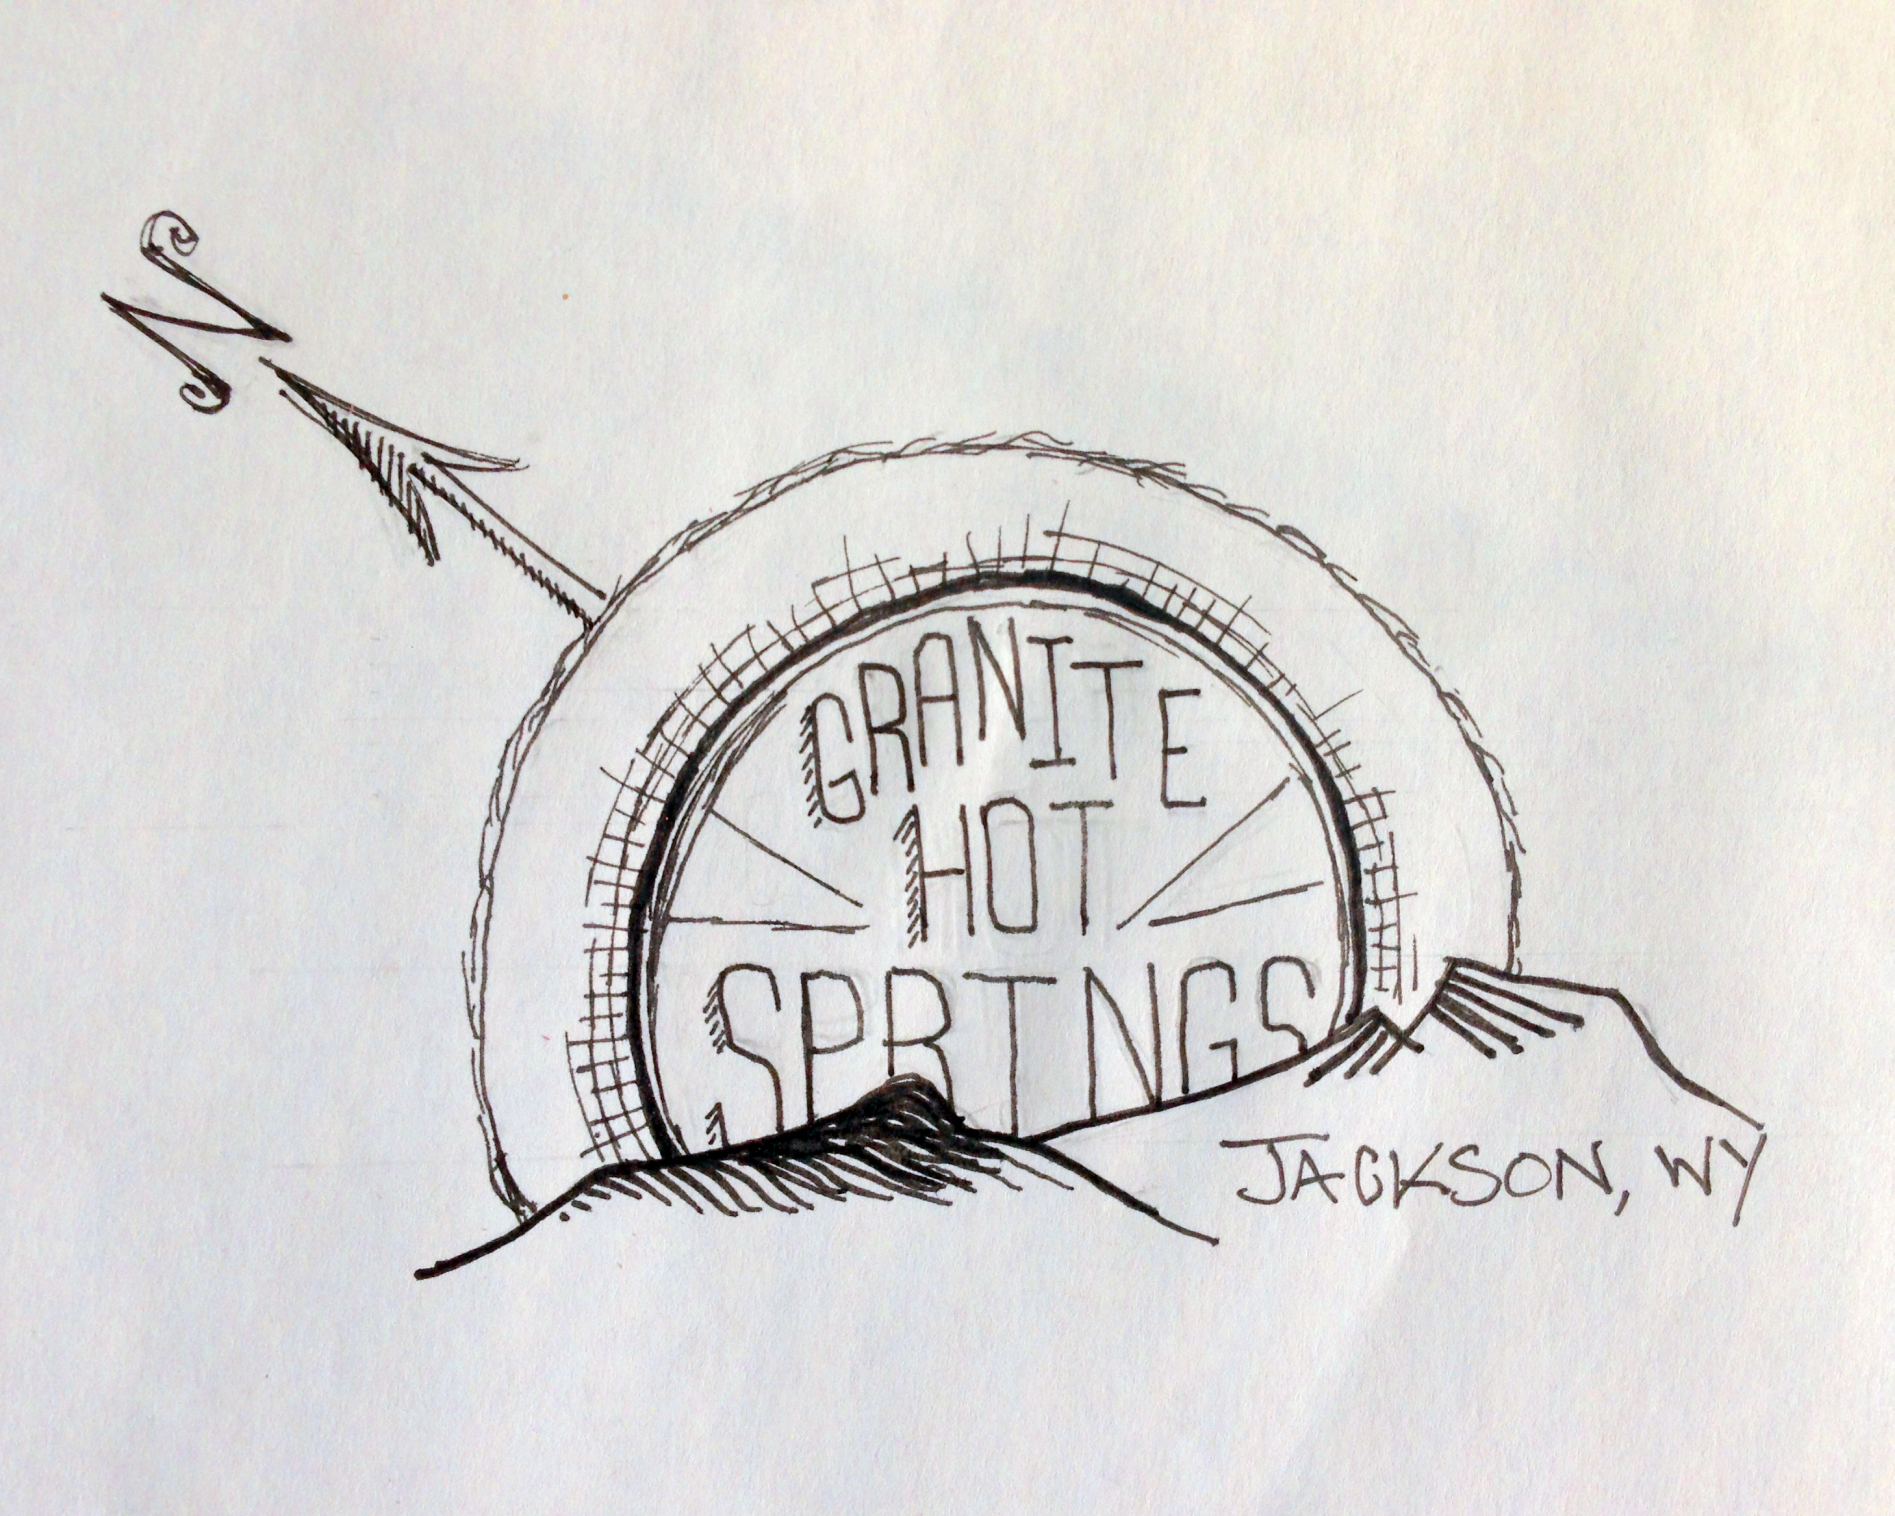 N
GRANITE
HOT
SPRINGS
JACKSON, WY